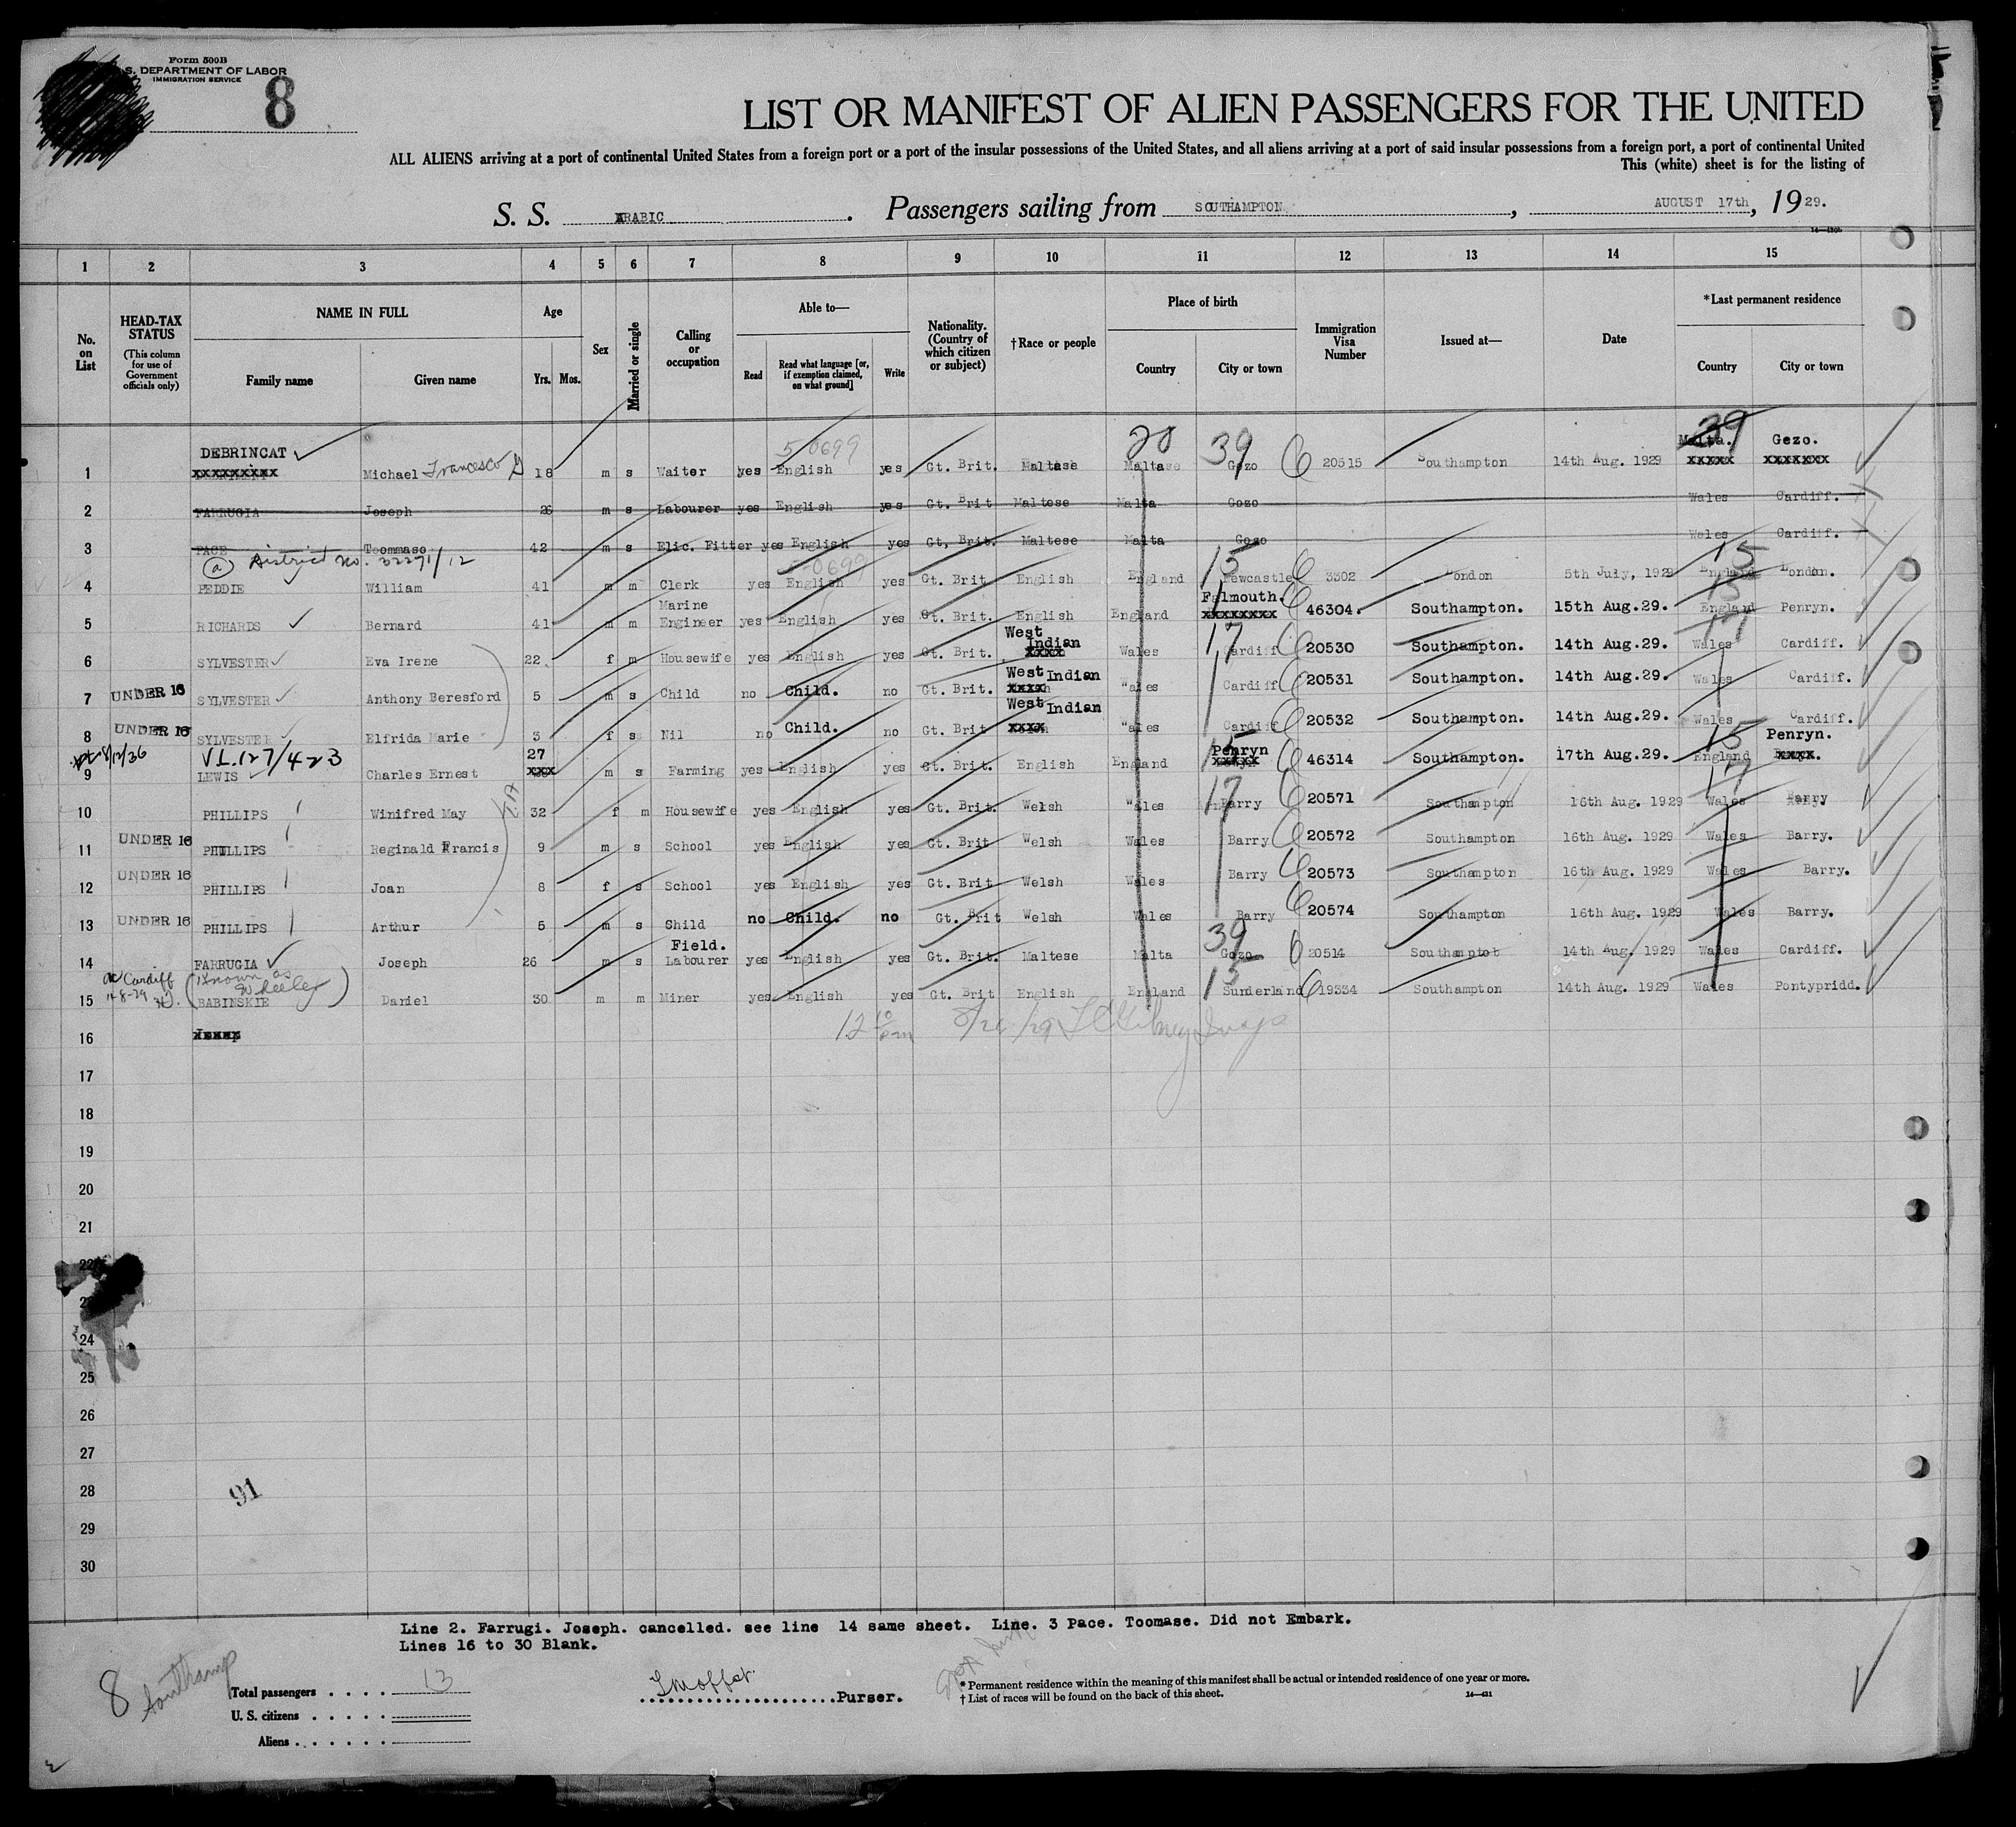 Form 500B
S. DEPARTMENT OF LABOR
IMMIGRATION SERVICE
8
LIST OR MANIFEST OF ALIEN PASSENGERS FOR THE UNITED
ALL ALIENS arriving at a port of continental United States from a foreign port or a port of the insular possessions of the United States, and all aliens arriving at a port of said insular possessions from a foreign port, a port of continental United
This (white) sheet is for the listing of
S. S. ARABIC. Passengers sailing from SOUTHAMPTON, AUGUST 17th, 1929.
1 2 3 4 5 6 7 8 9 10 11 12 13 14 15
No. on List
HEAD-TAX STATUS (This column for use of Government officials only)
NAME IN FULL Family name Given name
Age Yrs. Mos.
Sex
Married or single
Calling or occupation
Able to— Read Read what language [or, if exemption claimed, on what ground] Write
Nationality. (Country of which citizen or subject)
†Race or people
Place of birth Country City or town
Immigration Visa Number
Issued at—
Date
*Last permanent residence Country City or town
5/0699 20 39 39
1 DEBRINCAT xxxxxxxxx Michael Francesco 18 m s Waiter yes English yes Gt. Brit. Maltase Maltase Gozo 20515 Southampton 14th Aug. 1929 Malta. xxxxx Gezo. xxxxxxx
2 FARRUGIA Joseph 26 m s Labourer yes English yes Gt. Brit Maltese Malta Gozo Wales Cardiff.
3 PACE Toommaso 42 m s Elic. Fitter yes English yes Gt, Brit. Maltese Malta Gozo Wales Cardiff.
(a) District No. 32291/12 0699 15 15
4 PEDDIE William 41 m m Clerk yes English yes Gt. Brit English England Newcastle 3302 London 5th July, 1929 England London.
5 RICHARDS Bernard 41 m m Marine Engineer yes English yes Gt. Brit. English England Falmouth. xxxxxxxx 46304. Southampton. 15th Aug.29. England Penryn.
17 17
6 SYLVESTER Eva Irene 22 f m Housewife yes English yes Gt. Brit. West Indian xxxx Wales Cardiff 20530 Southampton. 14th Aug.29. Wales Cardiff.
7 UNDER 16 SYLVESTER Anthony Beresford 5 m s Child no Child. no Gt. Brit. West Indian xxxx Wales Cardiff 20531 Southampton. 14th Aug.29. Wales Cardiff.
8 UNDER 16 SYLVESTER Elfrida Marie 3 f s Nil no Child. no Gt. Brit West Indian xxxx Wales Cardiff 20532 Southampton. 14th Aug.29. Wales Cardiff.
VL.127/423 15 15
9 LEWIS Charles Ernest 27 xxx m s Farming yes English yes Gt. Brit. English England Penryn xxxxx 46314 Southampton. 17th Aug.29. England Penryn. xxxx.
17 17
10 PHILLIPS Winifred May 32 f m Housewife yes English yes Gt. Brit. Welsh Wales Barry 20571 Southampton 16th Aug. 1929 Wales Barry
11 UNDER 16 PHILLIPS Reginald Francis 9 m s School yes English yes Gt. Brit Welsh Wales Barry 20572 Southampton 16th Aug. 1929 Wales Barry.
12 UNDER 16 PHILLIPS Joan 8 f s School yes English yes Gt. Brit Welsh Wales Barry 20573 Southampton 16th Aug. 1929 Wales Barry.
13 UNDER 16 PHILLIPS Arthur 5 m s Shild no Child. no Gt. Brit Welsh Wales Barry 20574 Southampton 16th Aug. 1929 Wales Barry.
39
14 FARRUGIA Joseph 26 m s Field. Labourer yes English yes Gt. Brit. Maltese Malta Gozo 20514 Southamptob 14th Aug. 1929 Wales Cardiff.
Cardiff (Known as Wheeler) 15
15 BABINSKIE Daniel 30 m m Miner yes English yes Gt. Brit English England Sunderland 19334 Southampton 14th Aug. 1929 Wales Pontypridd.
16
17
18
19
20
21
22
23
24
25
26
27
28
91
29
30
Line 2. Farrugi. Joseph. cancelled. see line 14 same sheet. Line. 3 Pace. Toomase. Did not Embark.
Lines 16 to 30 Blank.
8 Southamp
Total passengers . . . . 13
U. S. citizens . . . . .
Aliens . . . . . .
Moffat Purser.
* Permanent residence within the meaning of this manifest shall be actual or intended residence of one year or more.
† List of races will be found on the back of this sheet.
14—431